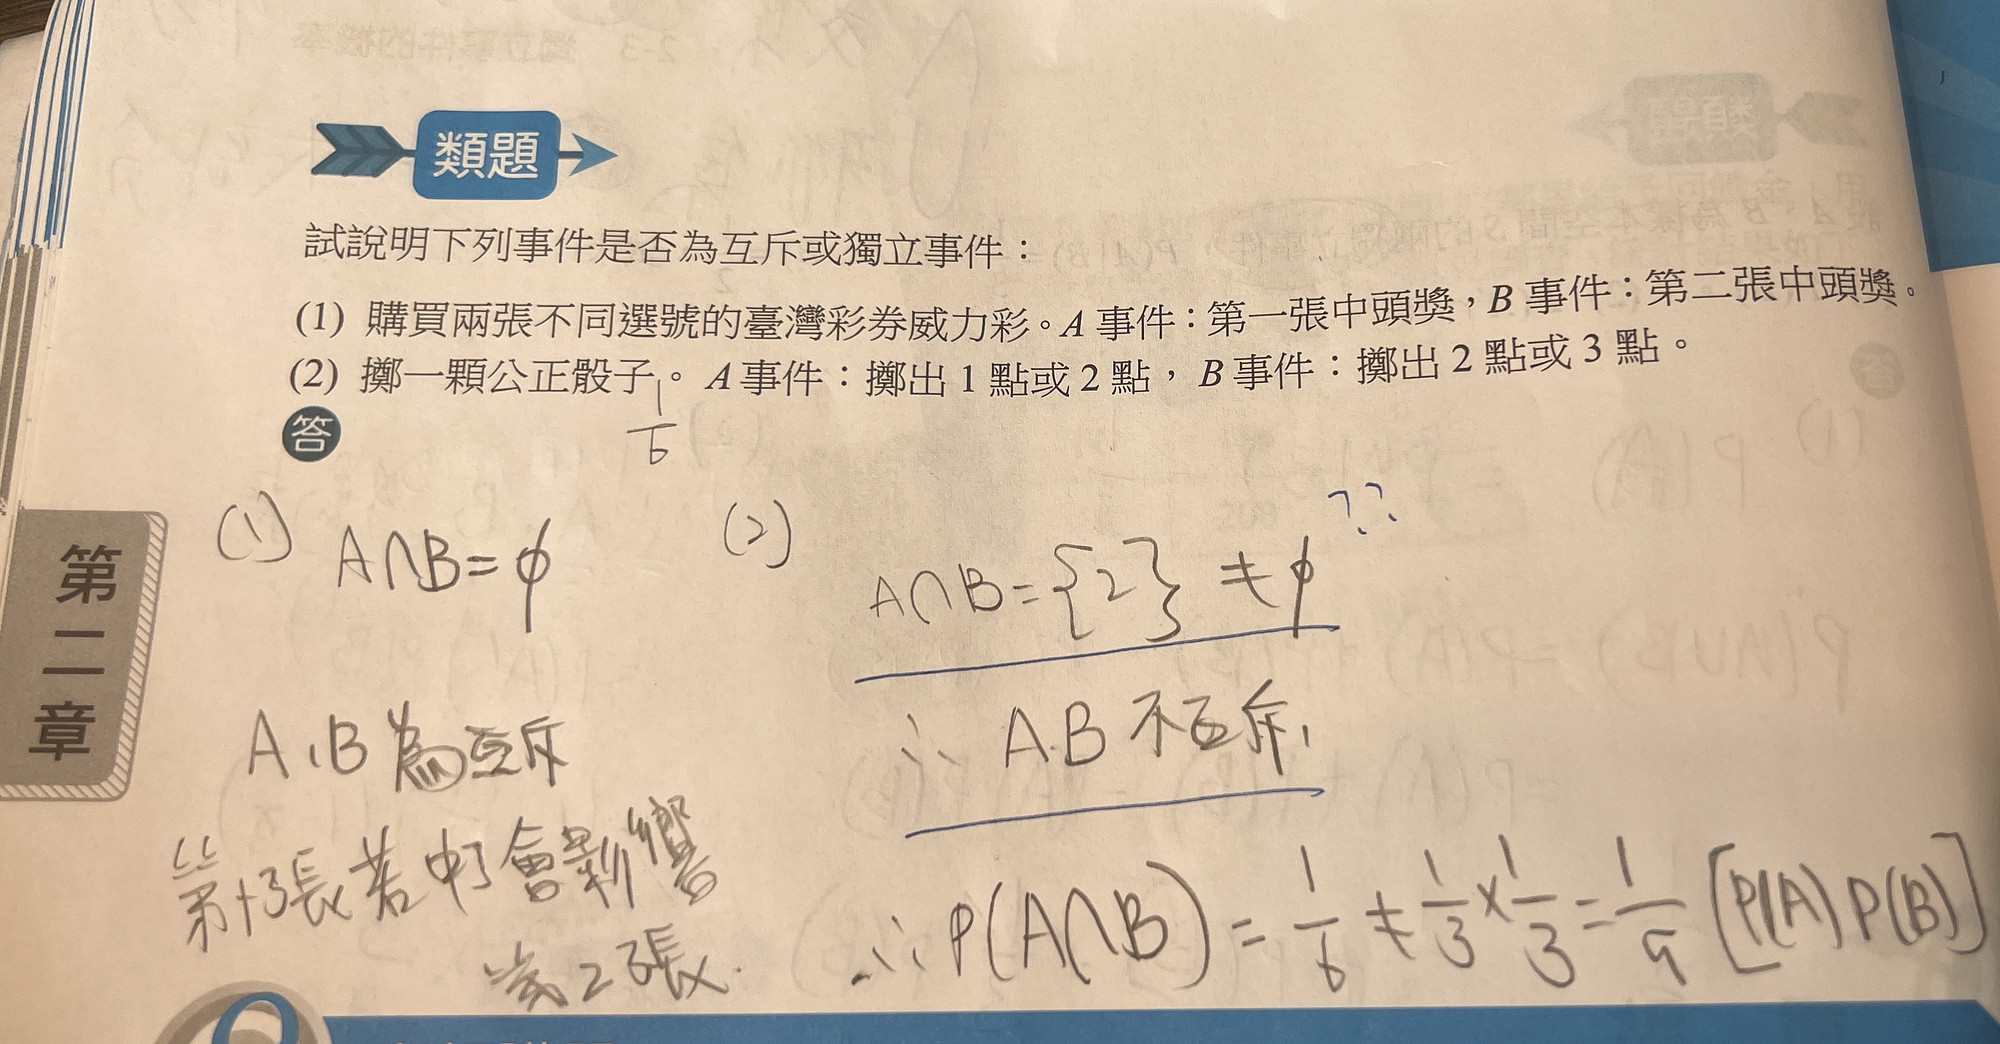 類題
試說明下列事件是否為互斥或獨立事件：
(1) 購買兩張不同選號的臺灣彩券威力彩。A 事件：第一張中頭獎，B 事件：第二張中頭獎。
(2) 擲一顆公正骰子。A 事件：擲出 1 點或 2 點，B 事件：擲出 2 點或 3 點。
1/6
答
(1) A∩B=ϕ
A、B為互斥
第1張若中了會影響
第2張.
(2) A∩B={2}≠ϕ ??
∴ A.B 不互斥,
∴ P(A∩B)=1/6≠1/3×1/3=1/9 [P(A)P(B)]
第二章